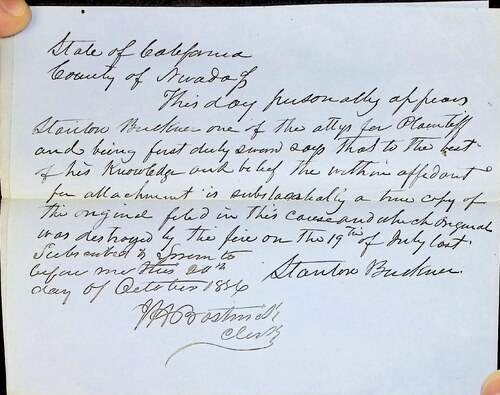 State of California
County of Nevada SS
This day personally appears
Stanton Buckner one of the attys for Plaintiff
and being first duly sworn says that to the best
of his Knowledge and belief the within affidavit
for attachment is substantially a true copy of
the original filed in this cause and which original
was destroyed by the fire on the 19th of July last
Subscribed & Sworn to
before me this 20th Stanton Buckner
day of October 1856
Bostwick
Clerk